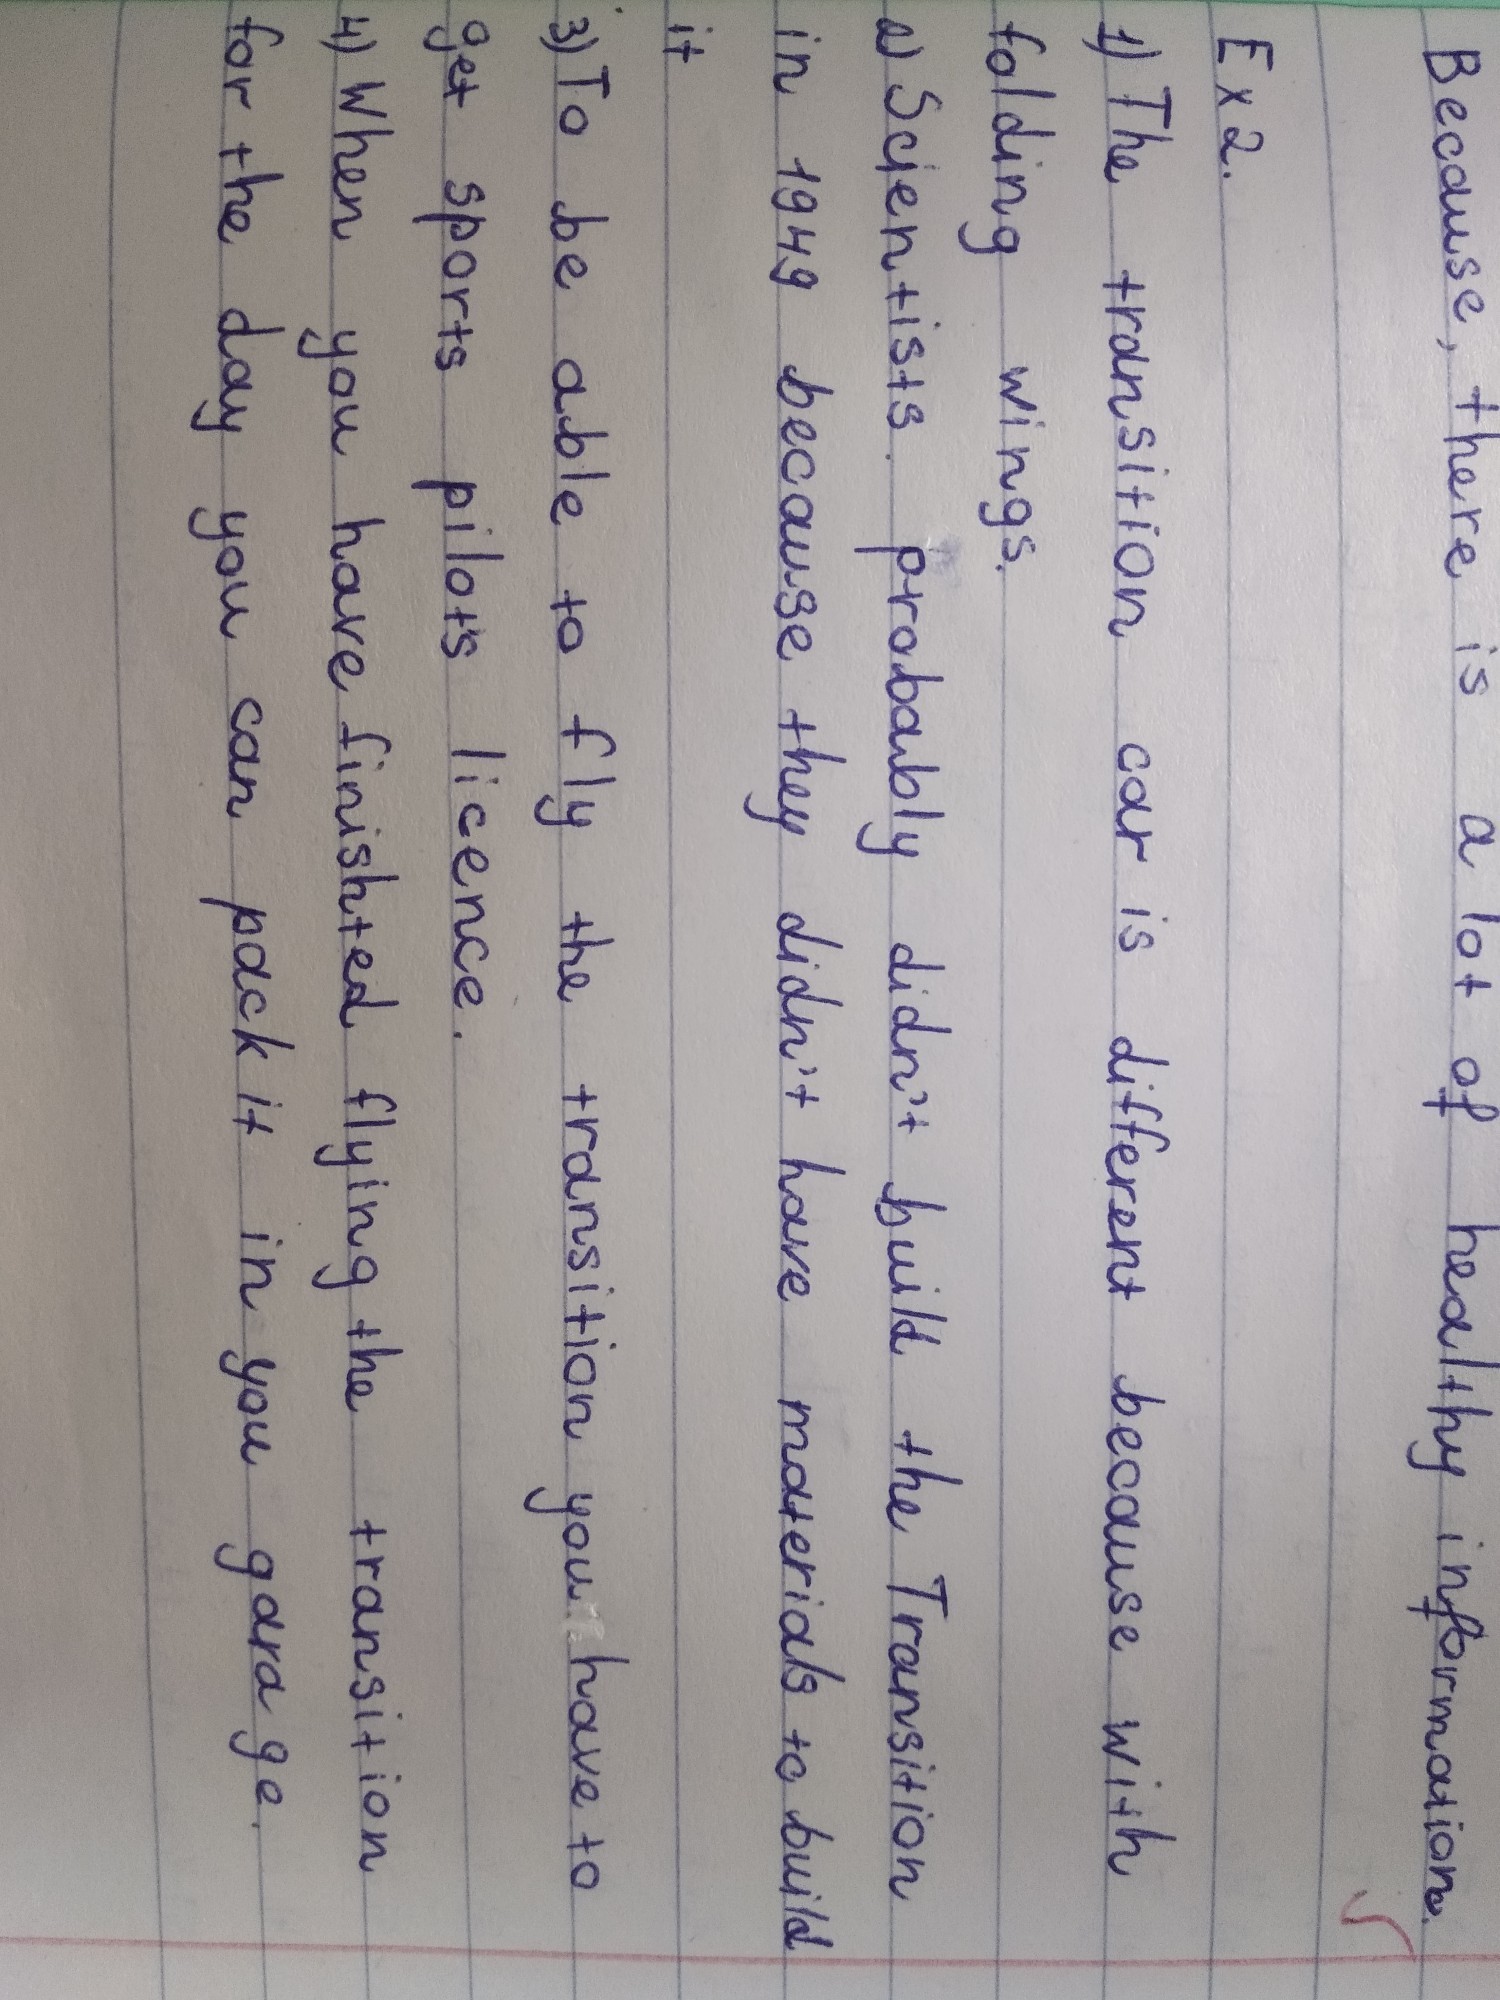 Because, there is a lot of healthy information.
Ex 2.
1) The transition car is different because with
folding wings.
2) Scientists probably didn't build the Transition
in 1949 because they didn't have materials to build
it
3) To be able to fly the transition you have to
get sports pilot's licence.
4) When you have finishted flying the transition
for the day you can pack it in you garage.